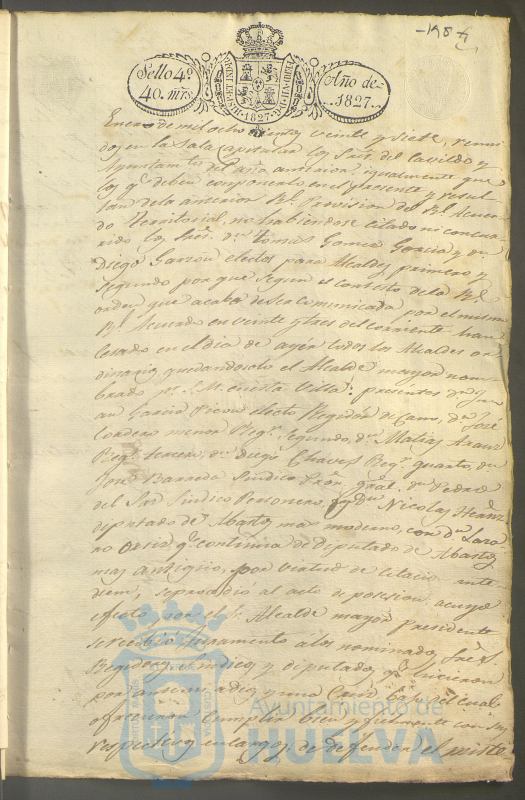 198
Sello 4º
40. mrs
HISP. ET IND. R. 1827
Año de
1827.
Enero de mil ocho cientos veinte y siete, reuni
dos en la Sala Capitular los Sres. del Cavildo y
Ayuntamto del año anterior, igualmente que
los qe deben componerlo en el presente y resul
tan de la anterior Rl Provision del Rl Acuer
do Territorial, no habiendose citado ni concur
rido los Sres. dn Tomas Gomez Garcia y dn
Diego Garzon electos para Alcaldes primero y
segundo por que segun el contesto de la Rl
orden que acaba de ser comunicada por el mismo
Rl Acuerdo en veinte y tres del corriente han
cesado en el dia de ayer todos los Alcaldes or
dinarios, quedando solo el Alcalde mayor nom
brado pr S. M. en esta Villa: presentes dn Ju
an Garcia electo Regidor Decano, dn José
Cordero menor Regr segundo, dn Matias Aranz
Regr tercero, dn Diego Chaves Regr quarto, dn
José Barreda Sindico Pror gral. dn Pedro
del Sindico Personero, y dn Nicolas Hernz
diputado de Abastos mas moderno, con dn Laza
ro qe continua de Diputado de Abastos
mas antiguo, por virtud de citacion ante
diem, se procedió al acto de posesion a cuyo
efecto por el Sr. Alcalde mayor presidente
se recibió juramento a los nominados Sres.
Regidores, Sindicos y diputado, qe hicieron
por ante mi a dios y una Cruz bajo el cual
ofrecieron cumplir bien y fielmente con sus
respectivos encargos; de defender el misto
Ayuntamiento de
HUELVA